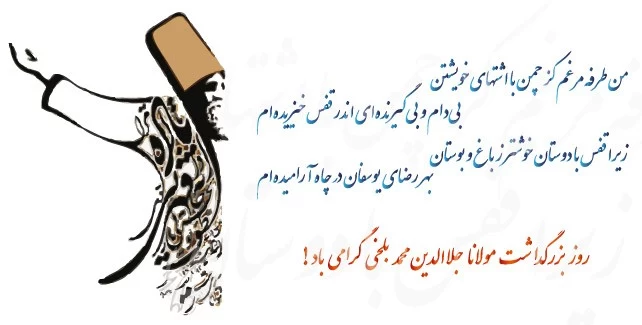 من طرفه مرغم کز چمن با اشتهای خویشتن
بی‌دام و بی‌گیرنده‌ای اندر قفس خیزیده‌ام
زیرا قفس با دوستان خوشتر ز باغ و بوستان
بهر رضای یوسفان در چاه آرامیده‌ام
روز بزرگداشت مولانا جلاالدین محمد بلخی گرامی باد!